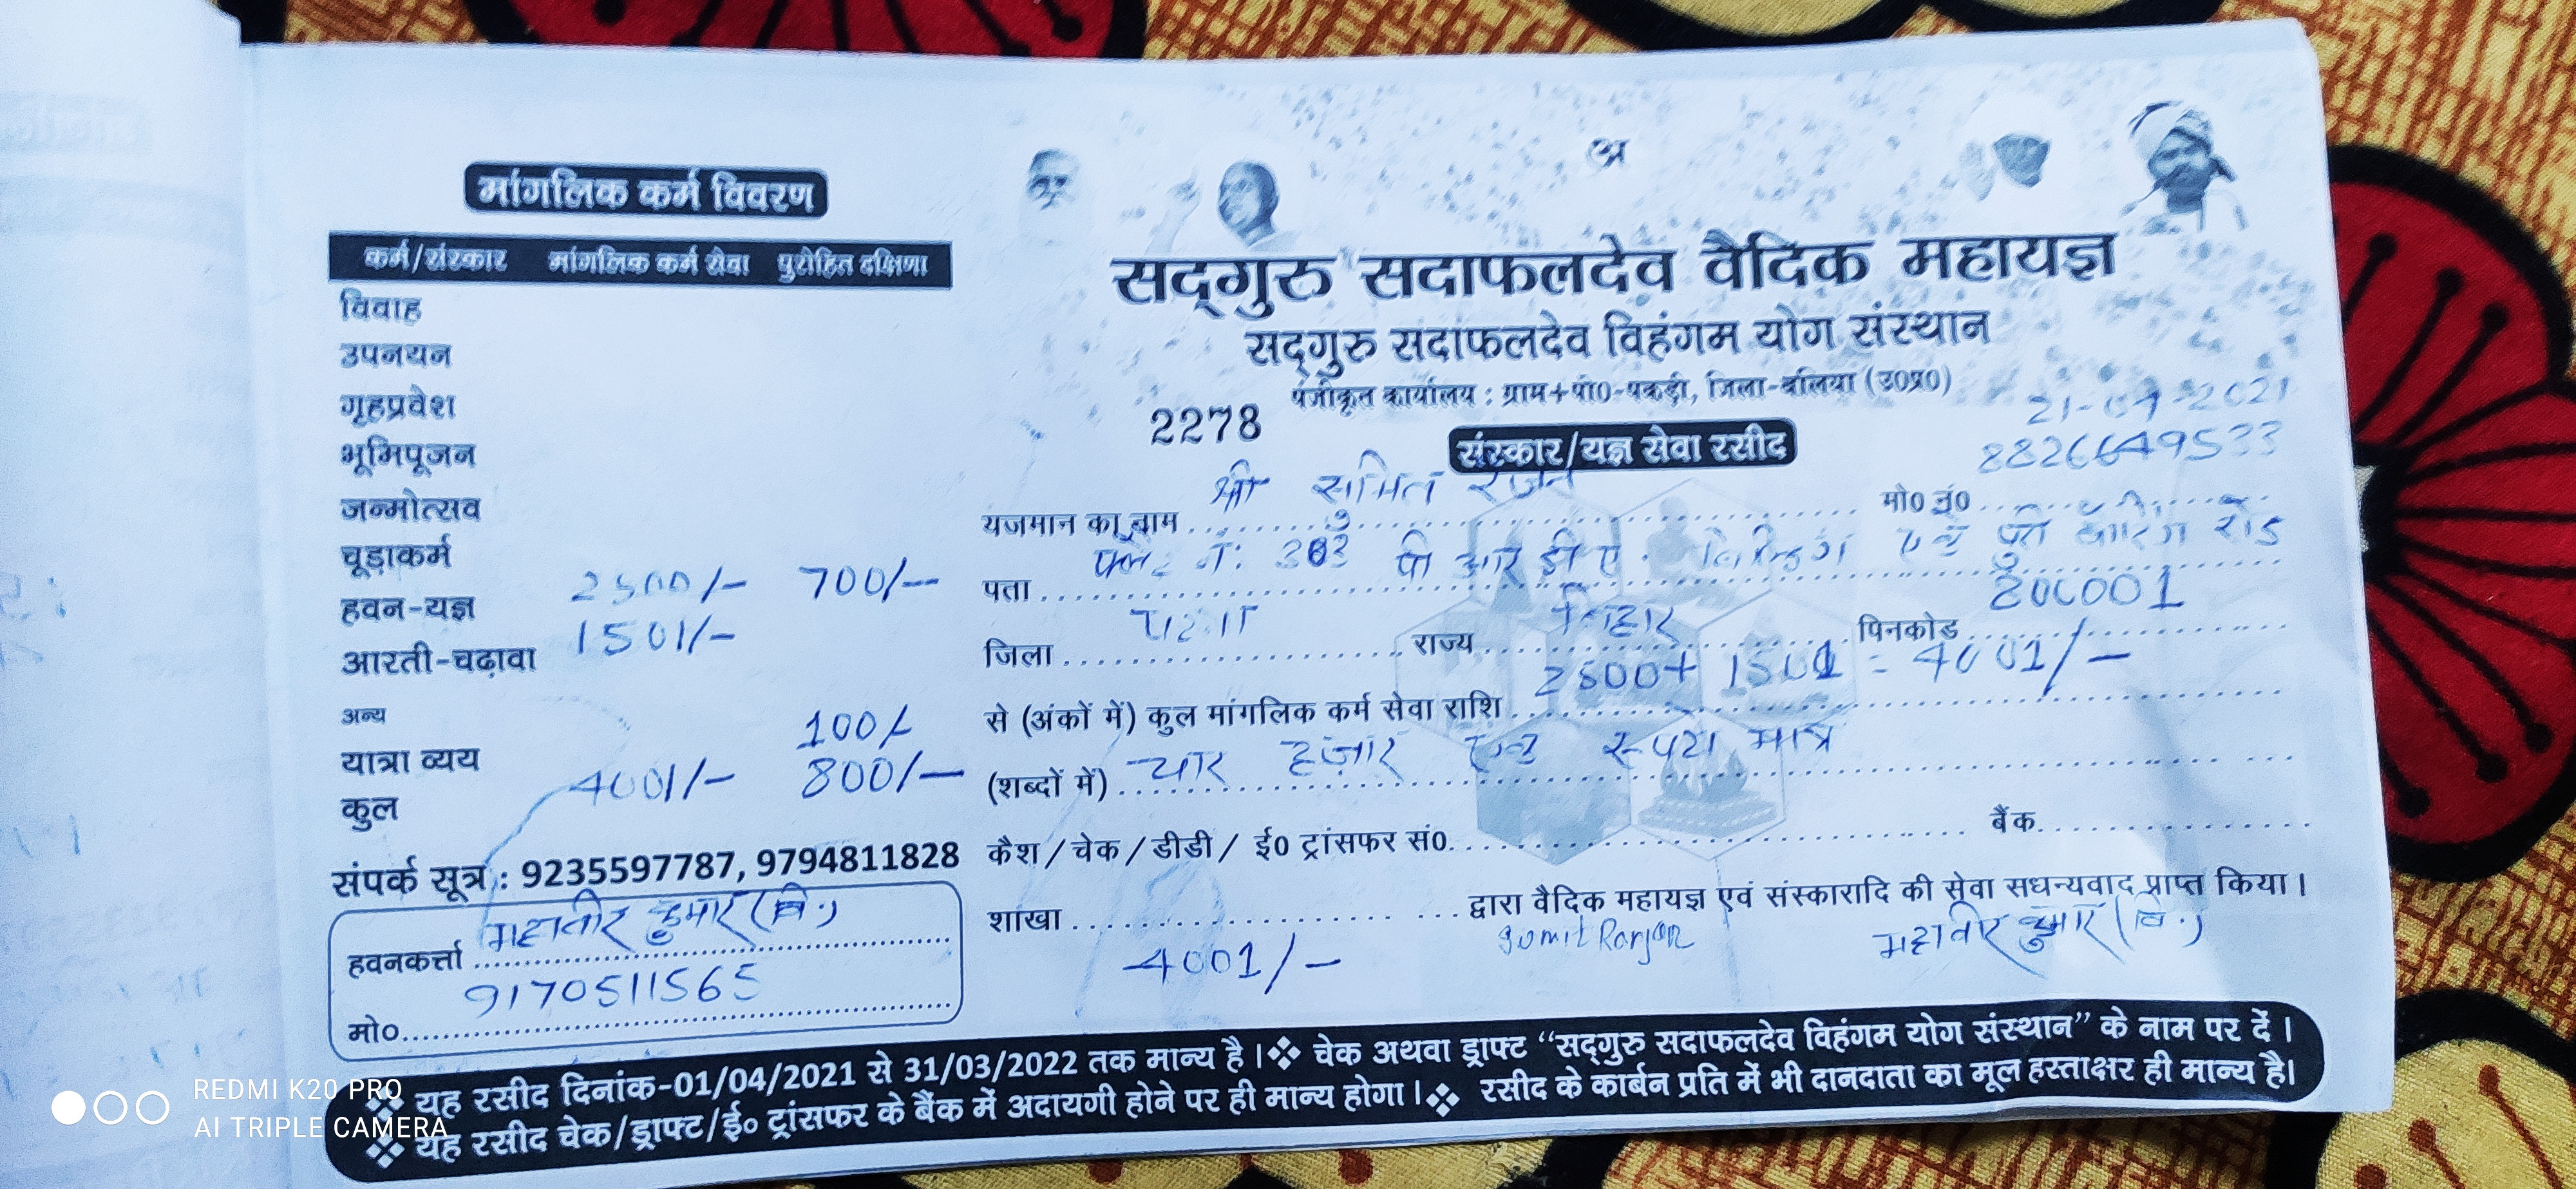 मांगलिक कर्म विवरण
कर्म/संस्कार मांगलिक कर्म सेवा पुरोहित दक्षिणा
विवाह
उपनयन
गृहप्रवेश
भूमिपूजन
जन्मोत्सव
चूड़ाकर्म
हवन-यज्ञ 2500/- 700/-
आरती-चढ़ावा 1501/-
अन्य
यात्रा व्यय 100/-
कुल 4001/- 800/-
संपर्क सूत्र : 9235597787, 9794811828
हवनकर्त्ता महावीर कुमार (वि.)
मो० 9170511565
अ
सद्गुरु सदाफलदेव वैदिक महायज्ञ
सद्गुरु सदाफलदेव विहंगम योग संस्थान
पंजीकृत कार्यालय : ग्राम+पो0-पकड़ी, जिला-बलिया (उ0प्र0)
2278
संस्कार/यज्ञ सेवा रसीद
यजमान का नाम श्री सुमित रंजन मो० नं० 8826649533
पता फ्लैट नं: 303 पी आर डी ए. बिल्डिंग रोड
जिला पटना राज्य बिहार पिनकोड 800001
से (अंकों में) कुल मांगलिक कर्म सेवा राशि 2500+1501 = 4001/-
(शब्दों में) चार हजार एक रूपया मात्र
कैश/चेक/डीडी/ ई० ट्रांसफर सं० बैंक
शाखा द्वारा वैदिक महायज्ञ एवं संस्कारादि की सेवा सधन्यवाद प्राप्त किया।
4001/- Sumit Ranjan महावीर कुमार (वि.)
❖ यह रसीद दिनांक-01/04/2021 से 31/03/2022 तक मान्य है। ❖ चेक अथवा ड्राफ्ट “सद्गुरु सदाफलदेव विहंगम योग संस्थान” के नाम पर दें।
❖ यह रसीद चेक/ड्राफ्ट/ई० ट्रांसफर के बैंक में अदायगी होने पर ही मान्य होगा। ❖ रसीद के कार्बन प्रति में भी दानदाता का मूल हस्ताक्षर ही मान्य है।
REDMI K20 PRO
AI TRIPLE CAMERA